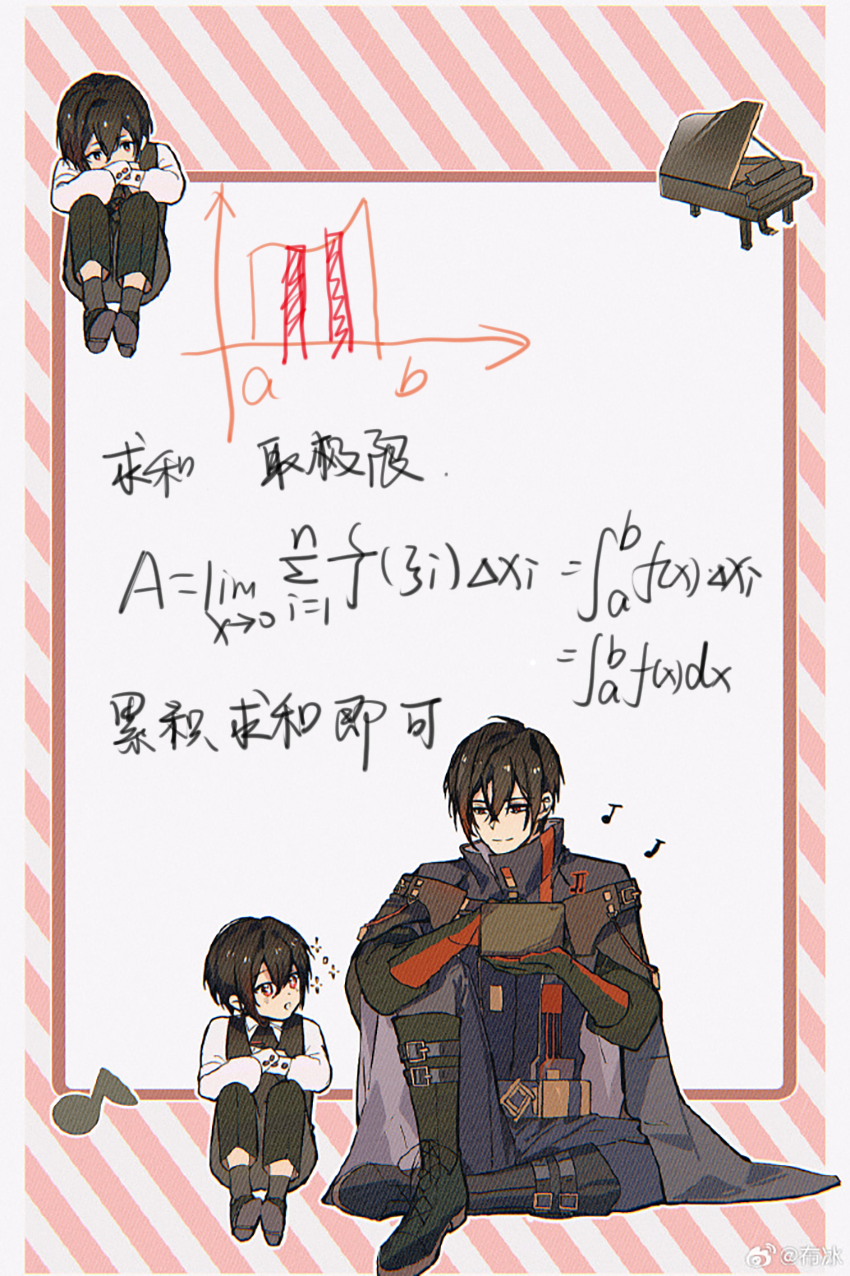 a b
求和 取极限.
A=lim x→0 n Σ i=1 f(ξi)Δxi =∫ b a f(x)Δxi
=∫ b a f(x)dx
累积求和即可
@布冰